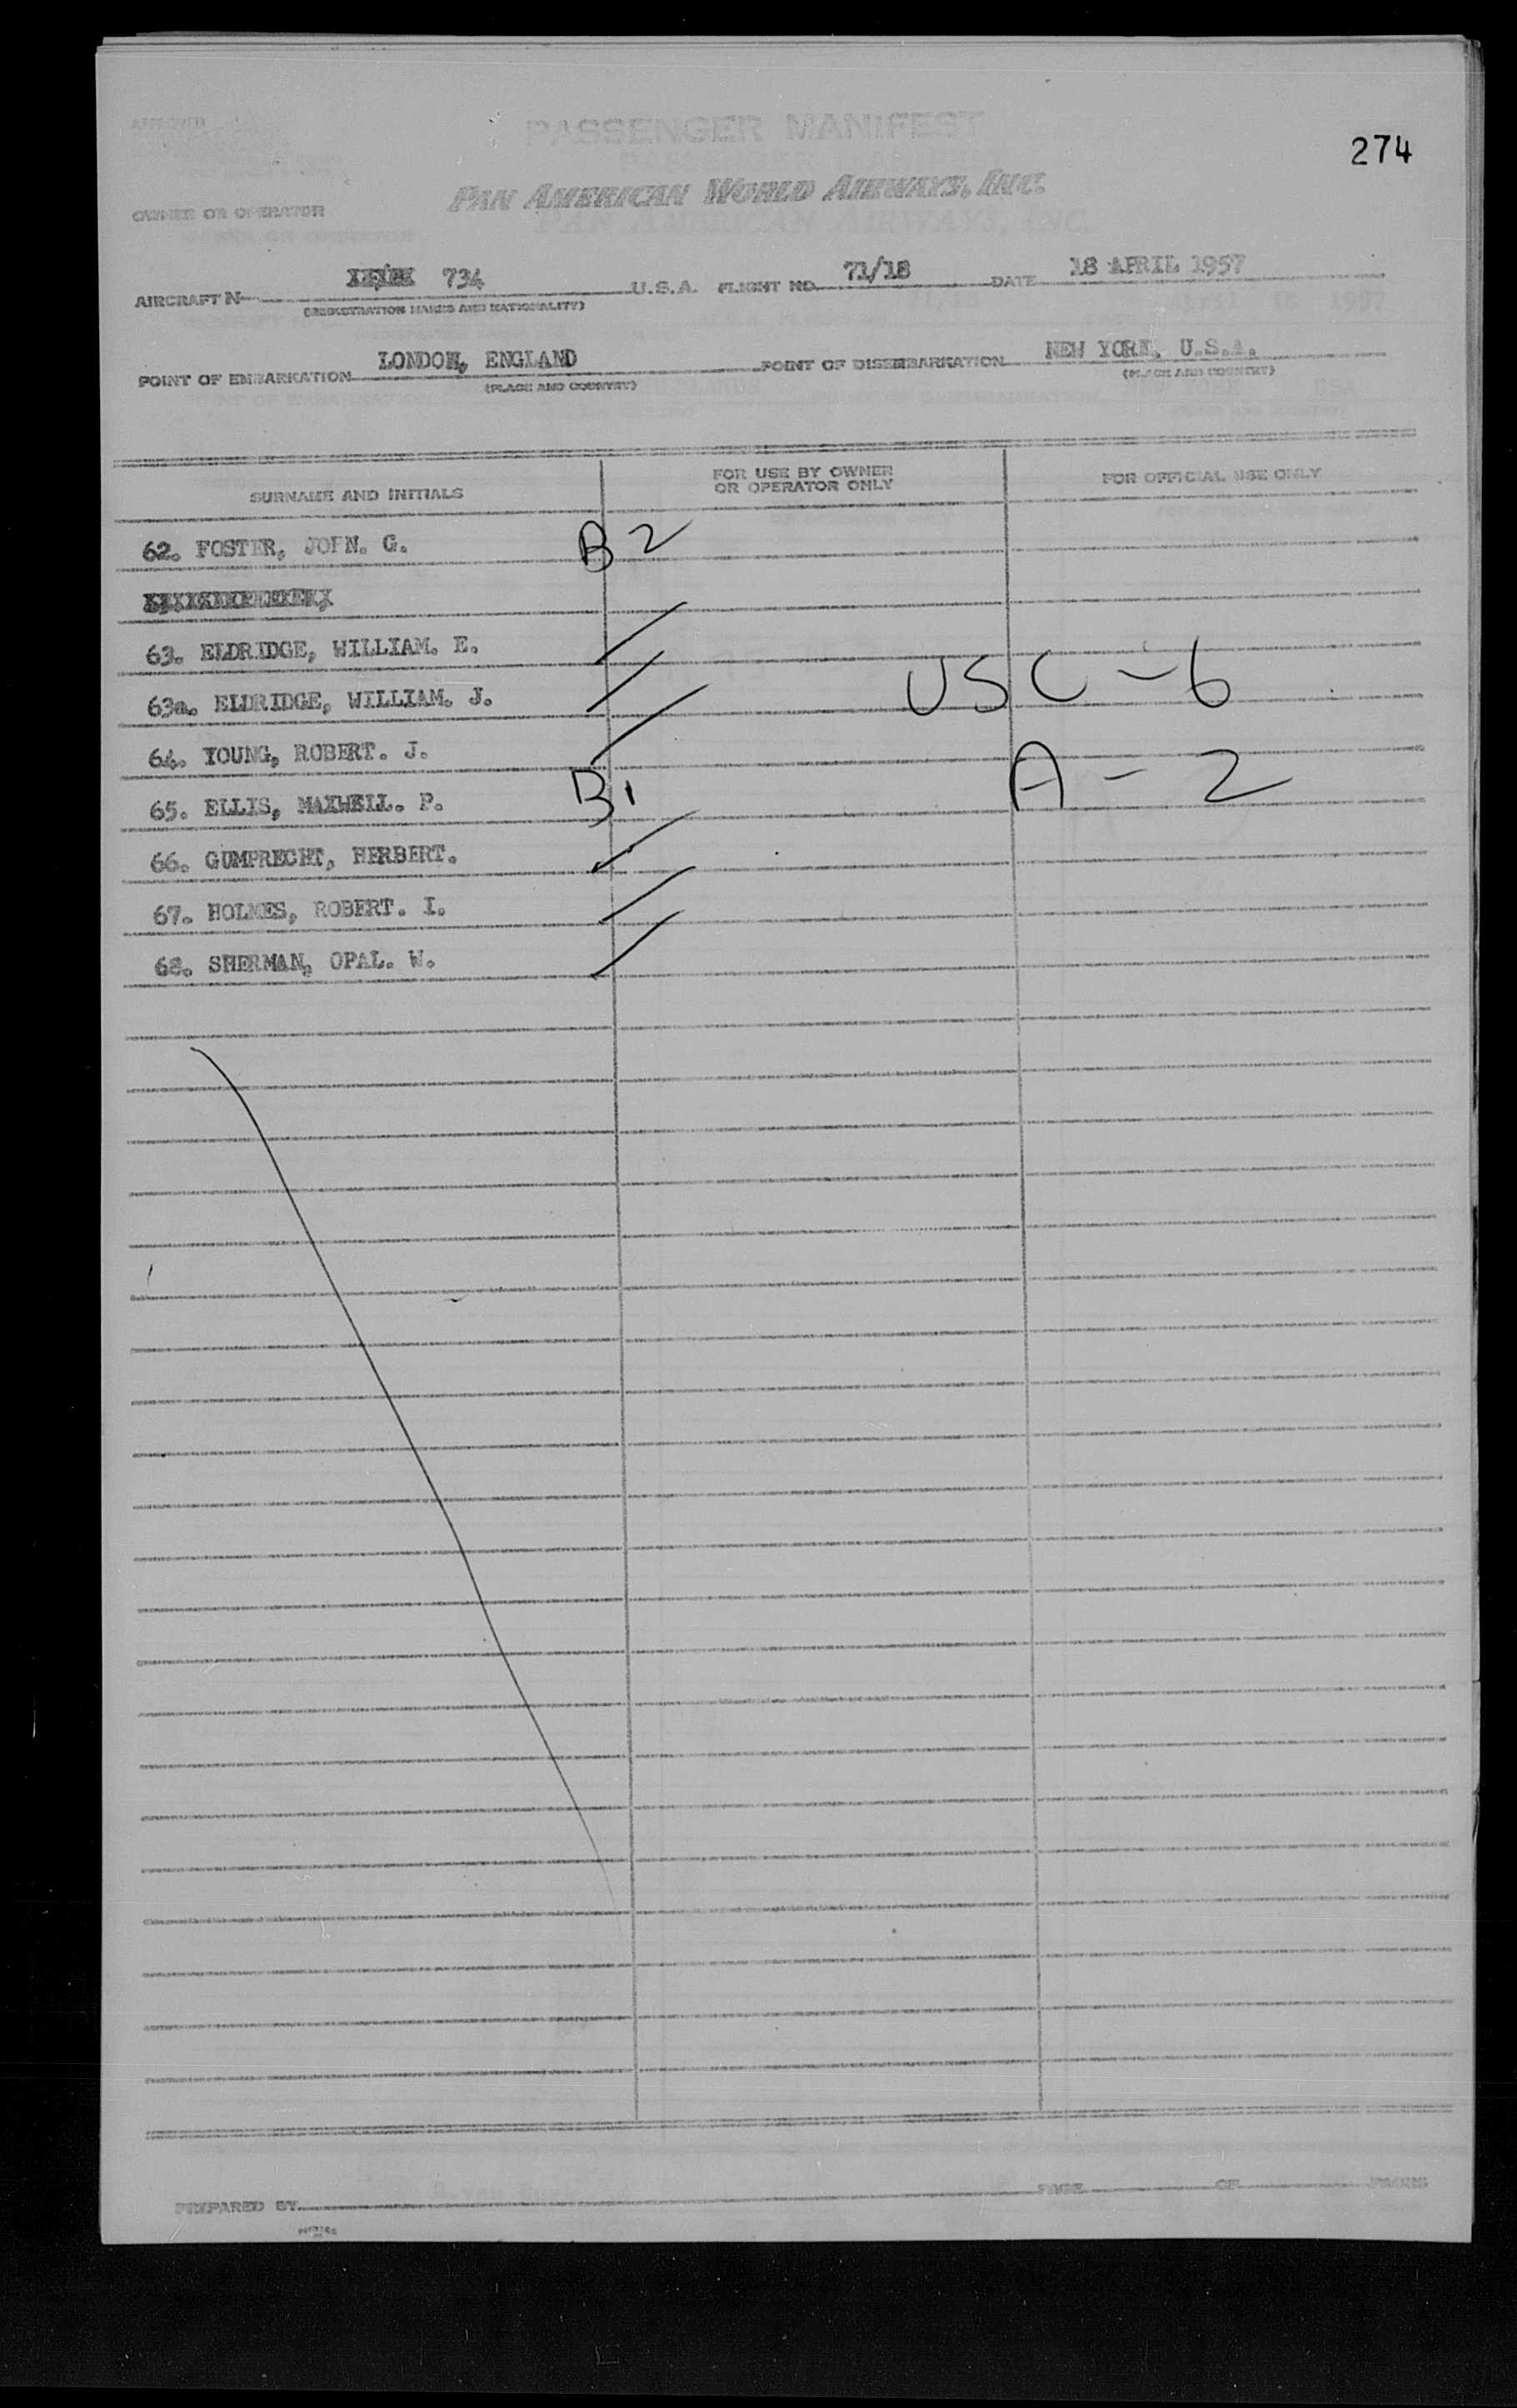 274
APPROVED
PASSENGER MANIFEST
PAN AMERICAN WORLD AIRWAYS, INC.
OWNER OR OPERATOR
AIRCRAFT N 734 U.S.A. FLIGHT NO. 71/18 DATE 18 APRIL 1957
(REGISTRATION MARKS AND NATIONALITY)
POINT OF EMBARKATION LONDON, ENGLAND POINT OF DISEMBARKATION NEW YORK, U.S.A.
(PLACE AND COUNTRY) (PLACE AND COUNTRY)
SURNAME AND INITIALS FOR USE BY OWNER OR OPERATOR ONLY FOR OFFICIAL USE ONLY
62. FOSTER, JOHN. G. B2
63. ELDRIDGE, WILLIAM. E.
63a. ELDRIDGE, WILLIAM. J. USC-6
64. YOUNG, ROBERT. J.
65. ELLIS, MAXWELL. P. B1 A-2
66. GUMPRECHT, HERBERT.
67. HOLMES, ROBERT. I.
68. SHERMAN, OPAL. W.
PREPARED BY PAGE OF PAGES